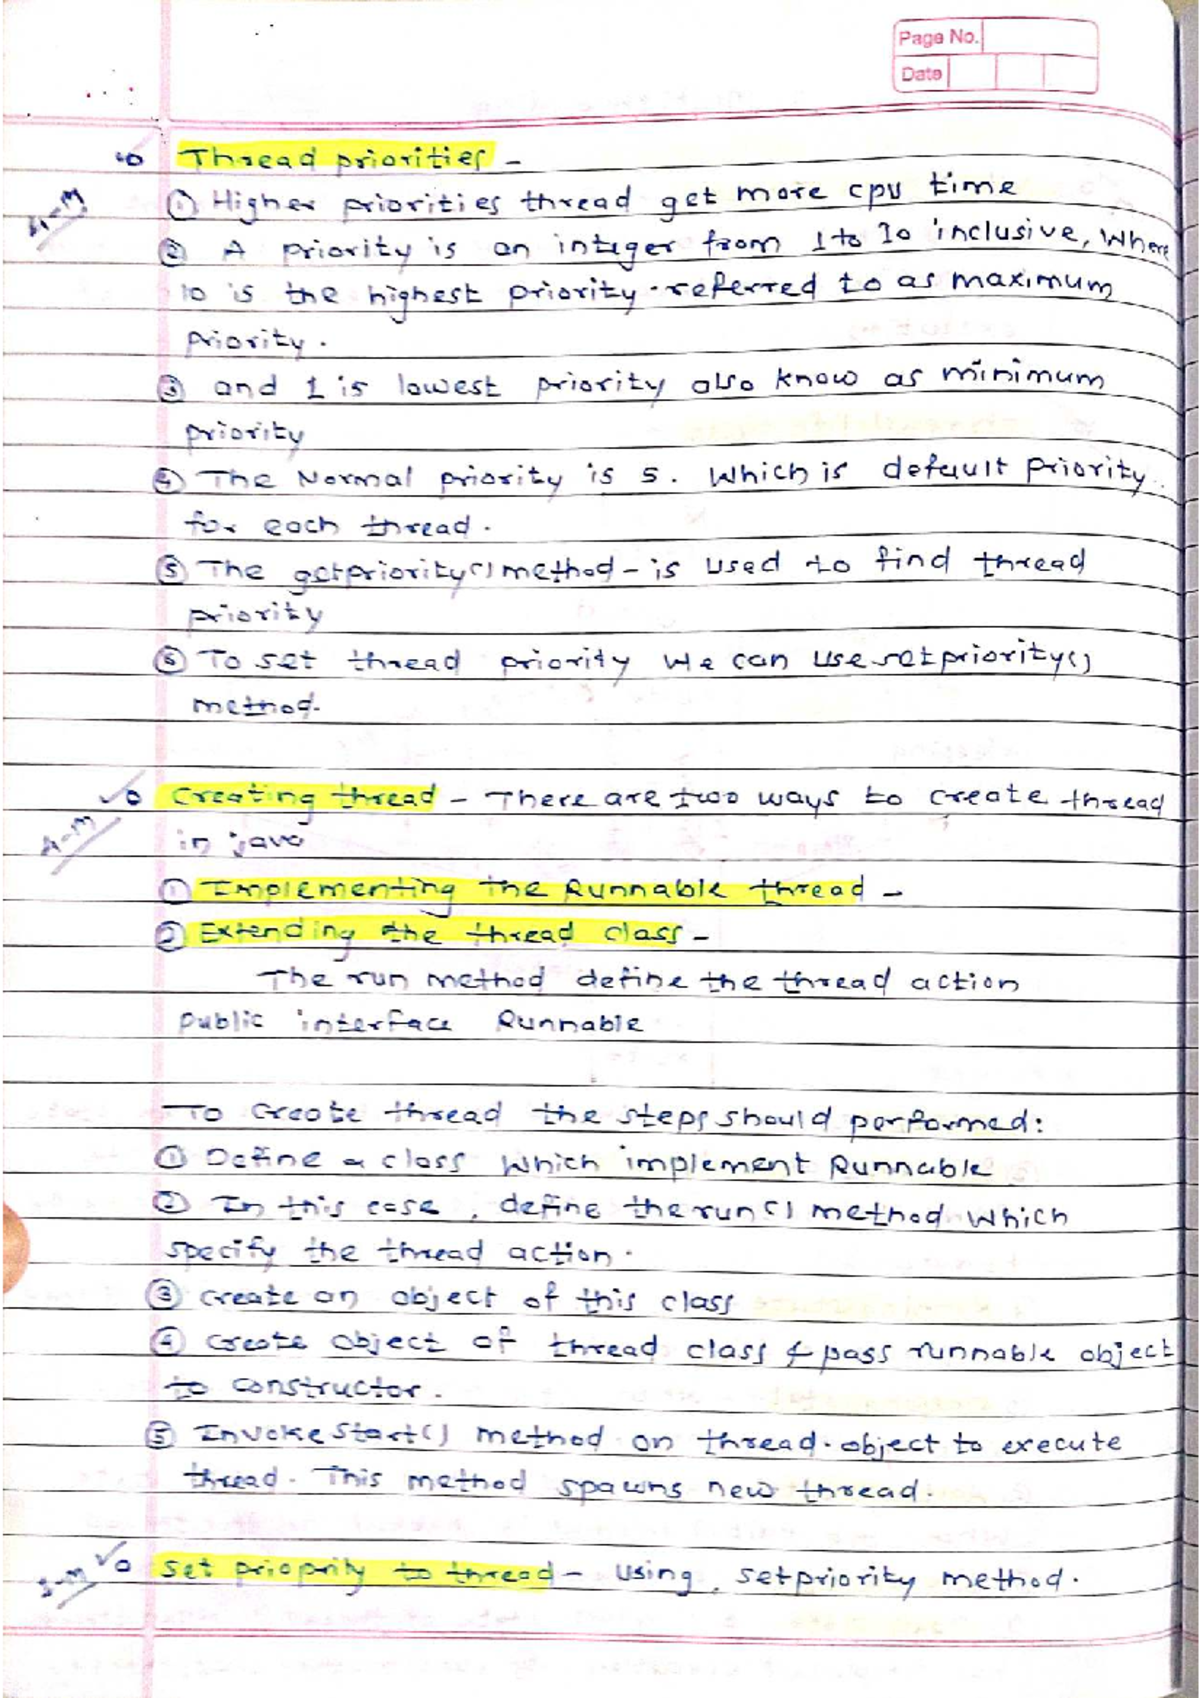 Page No.
Date
Thread priorities -
4-m
① Higher priorities thread get more cpu time
② A priority is an integer from 1 to 10 inclusive, where
10 is the highest priority. referred to as maximum
priority.
③ and 1 is lowest priority also know as minimum
priority
④ The Normal priority is 5. Which is default priority.
for each thread.
⑤ The getpriority() method - is used to find thread
priority
⑥ To set thread priority we can use setpriority()
method.
Creating thread - There are two ways to create thread
4-m
in java
① Implementing the Runnable thread -
② Extending the thread class -
The run method define the thread action
public interface Runnable
To create thread the steps should performed:
① Define a class which implement Runnable
② In this case, define the run() method which
specify the thread action.
③ create an object of this class
④ create object of thread class & pass runnable object
to constructor.
⑤ Invoke start() method on thread. object to execute
thread. This method spawns new thread.
set prioprity to thread - using, setpriority method.